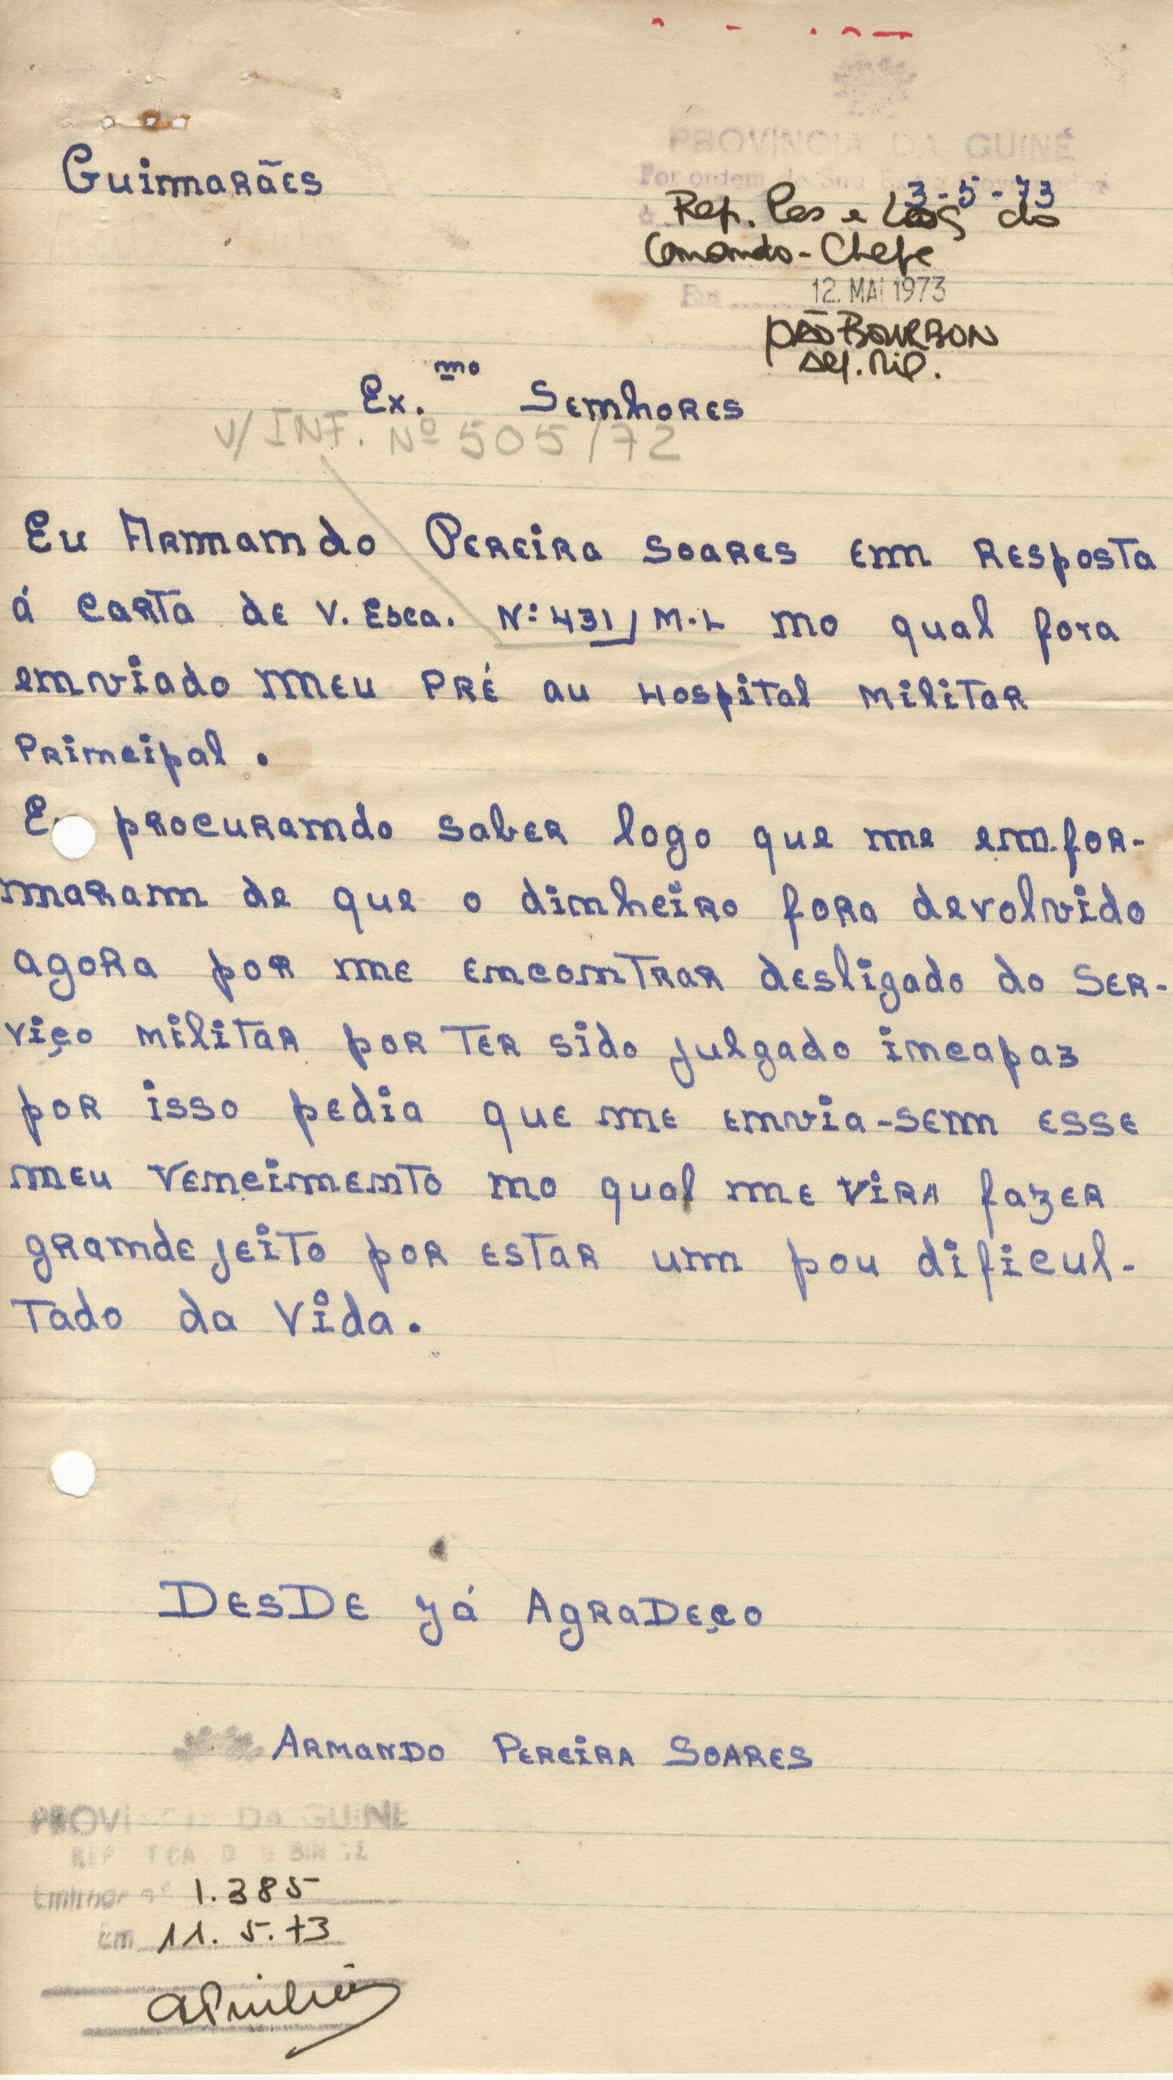 PROVINCIA DA GUINÉ
Por ordem de Sua
Guimarães 3-5-73
Rep. Pes e Log do
Comando-Chefe
Em
12. MAI 1973
Ex.mo Semhores
V/ INF. Nº 505/72
Eu Armamdo Pereira Soares em Resposta
á carta de V. Esca. Nº 431/M.L mo qual fora
emviado meu PRÉ au Hospital Militar
Primcipal.
E procuramdo saber logo que me emfor-
maram de que o dimheiro fora devolvido
agora por me emcomtrar desligado do Ser-
viço Militar por ter sido julgado imcapaz
por isso pedia que me emvia-sem esse
meu vemcimemto mo qual me vira fazer
gramde jeito por estar um pou dificul-
tado da vida.
Desde já Agradeço
Armando Pereira Soares
PROVINCIA DA GUINE
1.385
Em 11.5.73